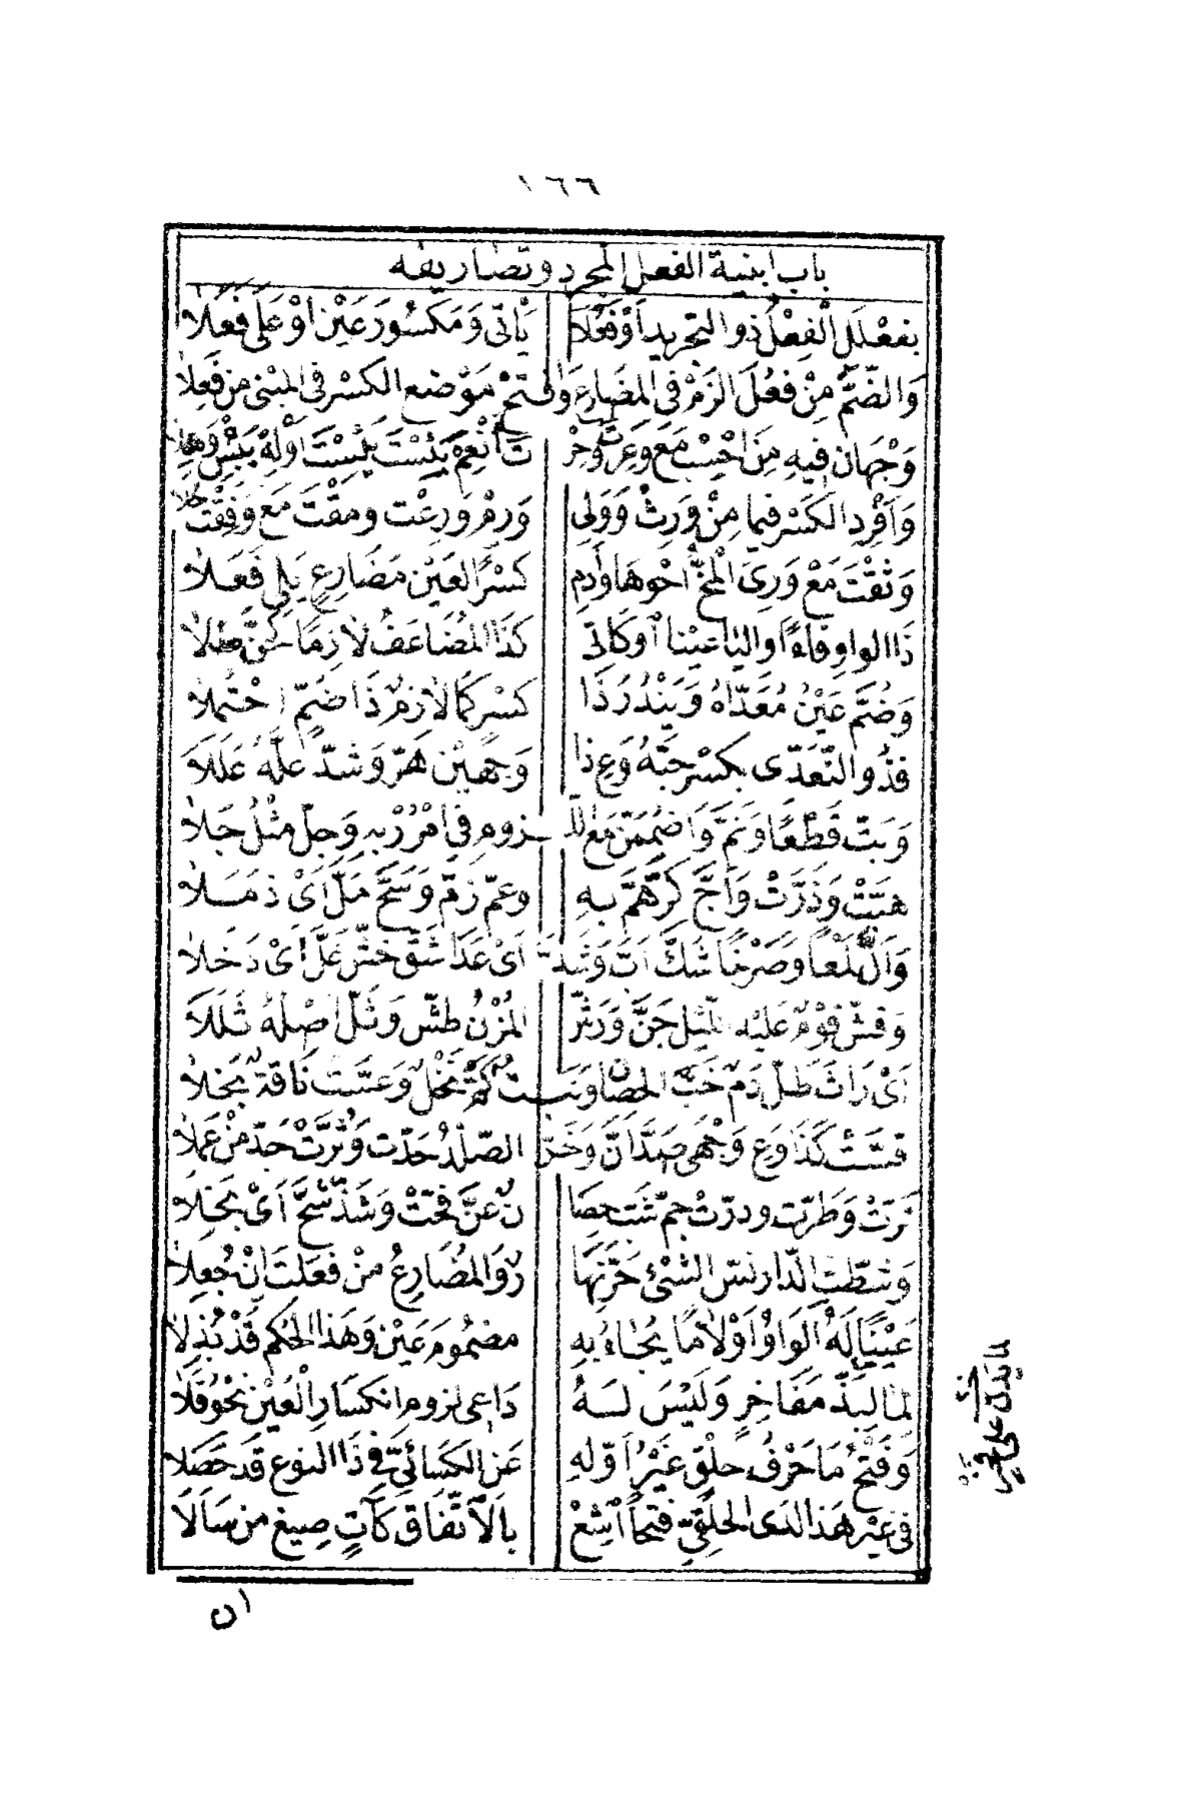 ١٦٦
باب ابنية الفعل المجرد وتصاريفه
بفَعْلَلَ الْفِعْلُ ذو التجريد أوْ فَعُلَا يَأتي وَمَكسُورَ عَيْنٍ أوْ عَلَى فَعَلَا
وَالضّمَّ مِنْ فَعُلَ الزَمْ فِي المضَارِعِ وَافتَحْ مَوْضع الكَسْرِ في المبْنى مِن فَعِلا
وَجْهَانِ فيهِ مِنَ احْسِبْ مَعَ وَغِرْتَ وَحِرْ تَ انْعِمْ بَئِسْتَ يَئِسْتَ اوْلِهْ يَبِسْ وَهِلا
وَأَفْرِدِ الكَسْرَ فيما مِنْ وَرِثْ وَوَلِي وَرِمْ وَرِعْت ومِقْتَ مَعْ وَفِقْتَ حُلا
وَثِقْتَ مَعْ وَرِيَ الْمُخُّ احْوِهَا وَأدِم كَسْرًا لعَيْنِ مضَارِعٍ يَلِي فَعَلا
ذَا الواوِ فاءً اوِ اليا عينًا أو كَأتى كَذَا المُضَاعَفُ لازِمًا كَحَنَّ طَلا
وَضُمَّ عَيْنُ مُعَدّاهُ وَيَنْدُرُ ذَا كَسْرٍ كَمَا لازِمٌ ذَا ضَمٍّ احْتُمِلا
فَذُو التّعَدّي بكَسْرٍ حَبّهُ وَعِ ذا وَجهَيْنِ هَرّ وَشَدّ عَلّهُ عَلَلا
وَبَتّ قَطْعًا وَنَمَّ وَاضْمُمَنّ مَعَ اللّـ ـزومِ في امْرُرْ بِهِ وَجلّ مِثْلُ جَلا
هَبّتْ وَذَرّتْ وَأجّ كَرّ هَمَّ بِهِ وعمّ زمّ وَسَحَّ مَلّ أيْ ذَمَلا
وَألّ لَمْعًا وَصَرْخًا شَكّ أبّ وَشَدّ أيْ عَدَا شَقّ خشّ غَلّ أيْ دَخَلا
وَقشّ قوْمٌ عَليْهِ الليْلُ جَنّ وَرَشّ المُزْنُ طَشّ وَثَلّ أصْلُهُ ثَلَلا
أيْ رَاثَ طَلّ دَمٌ خَبّ الحصَانُ وَنَبْتٌ كَمّ نَخْلٌ وَعَسّت نَاقَةٌ بخَلا
قَسّتْ كَذَا وَعِ وَجْهَيْ صَدّ أثّ وَخَرّ الصّلْدُ حَدّت وَثَرّتْ جَدّ مَنْ عَمِلا
تَرّتْ وَطَرّت ودرّتْ جمّ شَبّ حِصَا نٌ عَنّ فَحّتْ وَشَذّ شَحَّ أيْ بَخِلا
وَشَطّتِ الدّار نَسّ الشّيْءُ حَرّ نَهَا رٌ وَالمُضَارِعُ مِنْ فَعَلتَ إنْ جُعِلا
عَيْنًا لَهُ الوَاوُ أوْ لامًا يُجَاءُ بِهِ مضْمُومَ عَيْنٍ وَهَذا الحكم قَدْ بُذِلا
لما لِبَذّ مفَاخِرٍ وَلَيْسَ لَهُ دَاعِي لزومِ انكسَارِ الْعَيْنِ نَحْوُ قَلا
وَفَتْحُ مَا حَرْفُ حلْقٍ غَيْرُ أوّلهِ عَنِ الكَسَائِيِّ في ذَا النوعِ قَد حَصَلا
في غيْرِ هَذا لدَى الحلْقيّ فتحًا أشِعْ بالاتّفَاقِ كَآتٍ صِيغَ مِن سَألا
ان